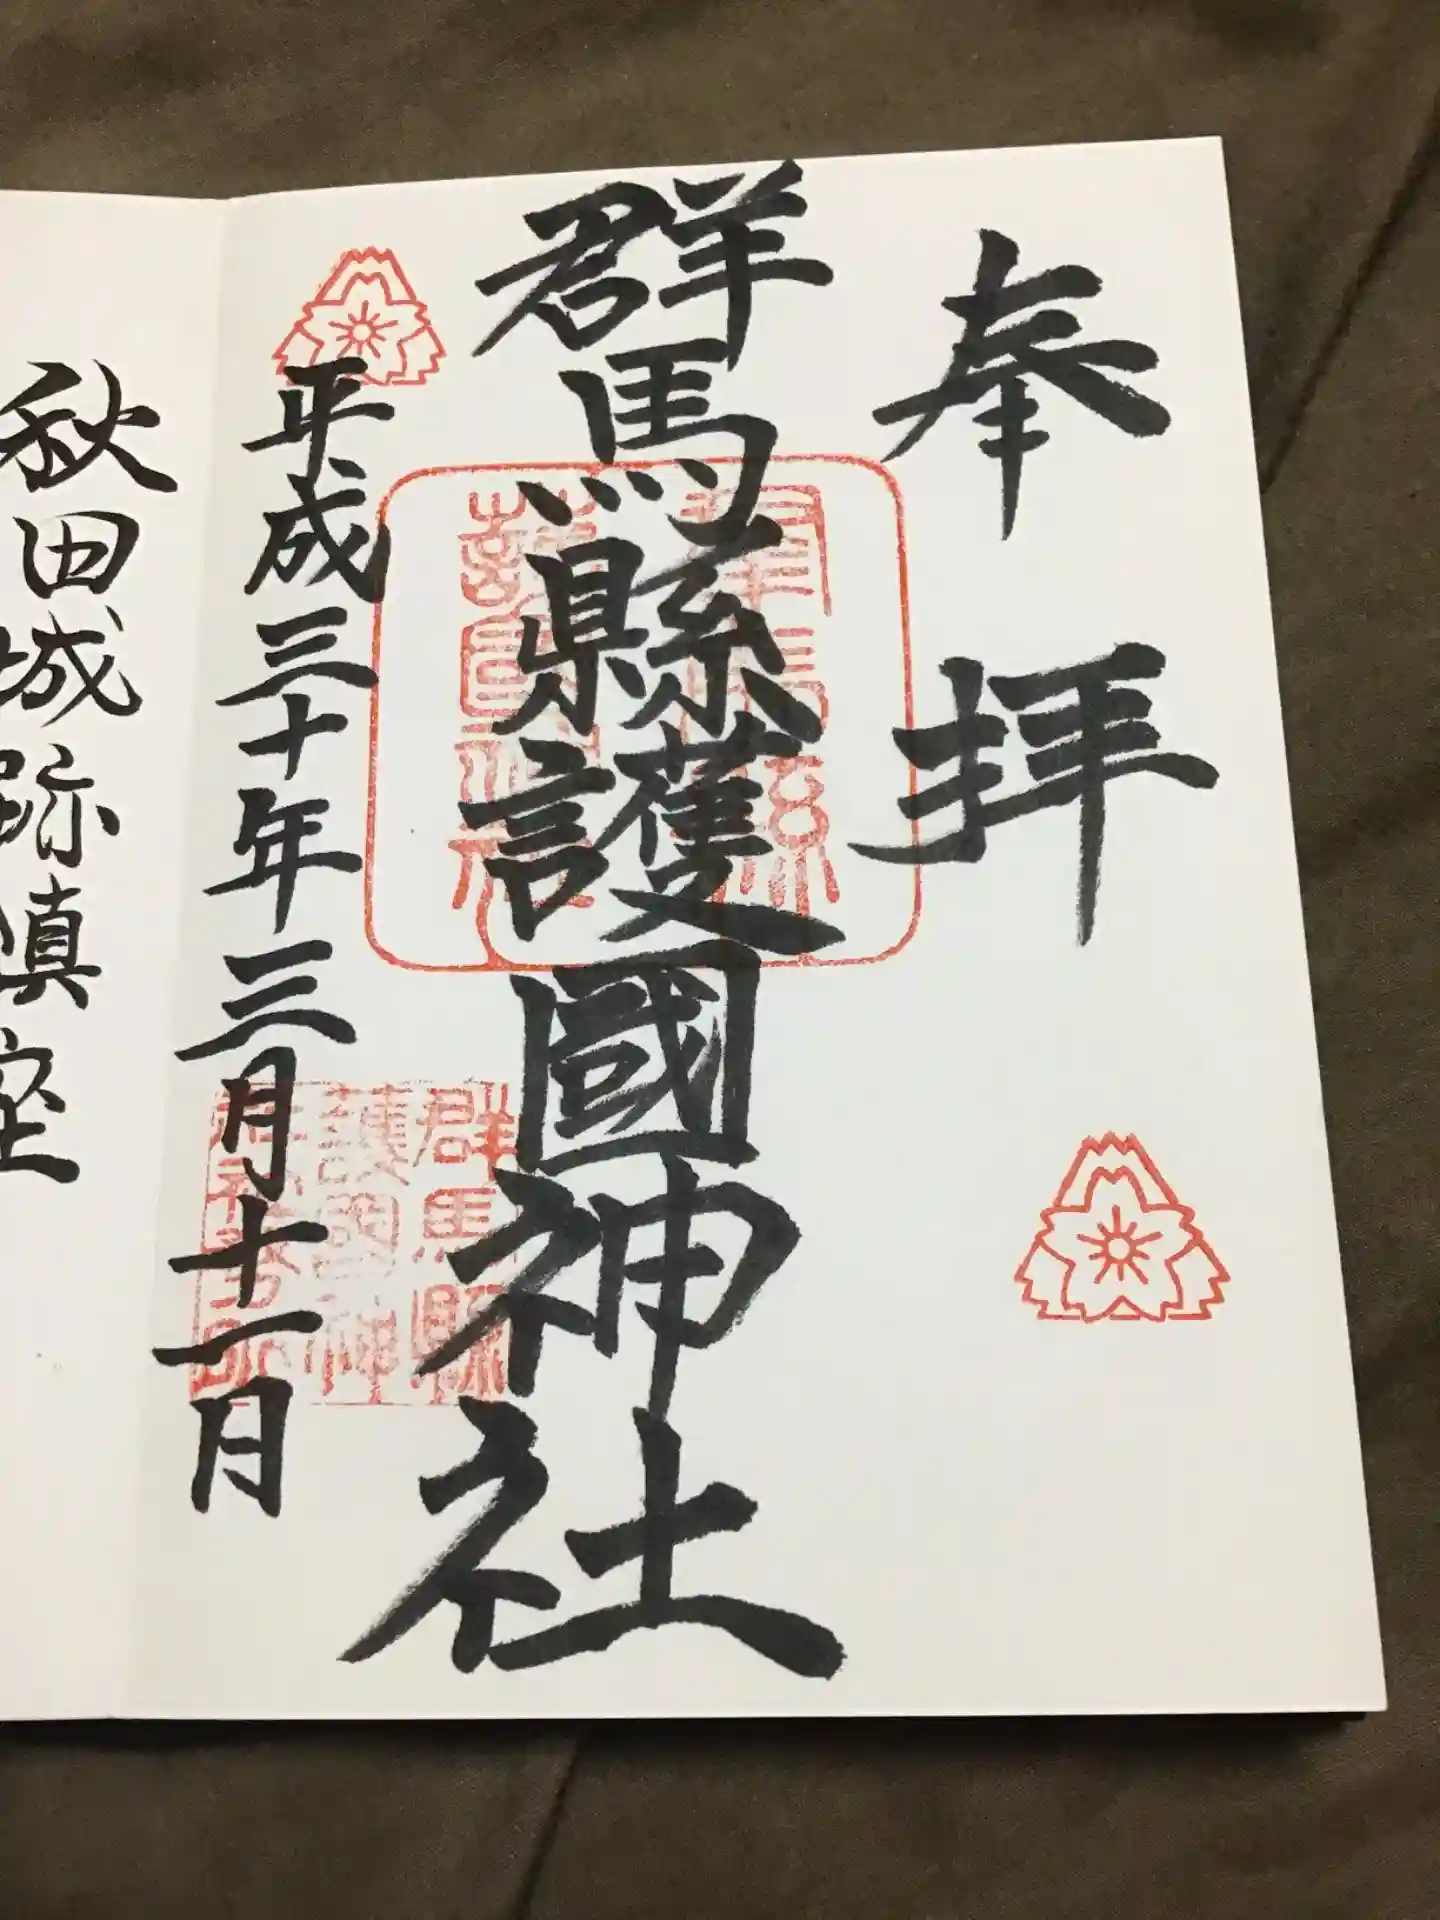 奉拝
群馬縣護國神社
平成三十年三月十一月
群馬縣
護國神
社社務所
群馬縣
護國神社
秋田城跡鎮座